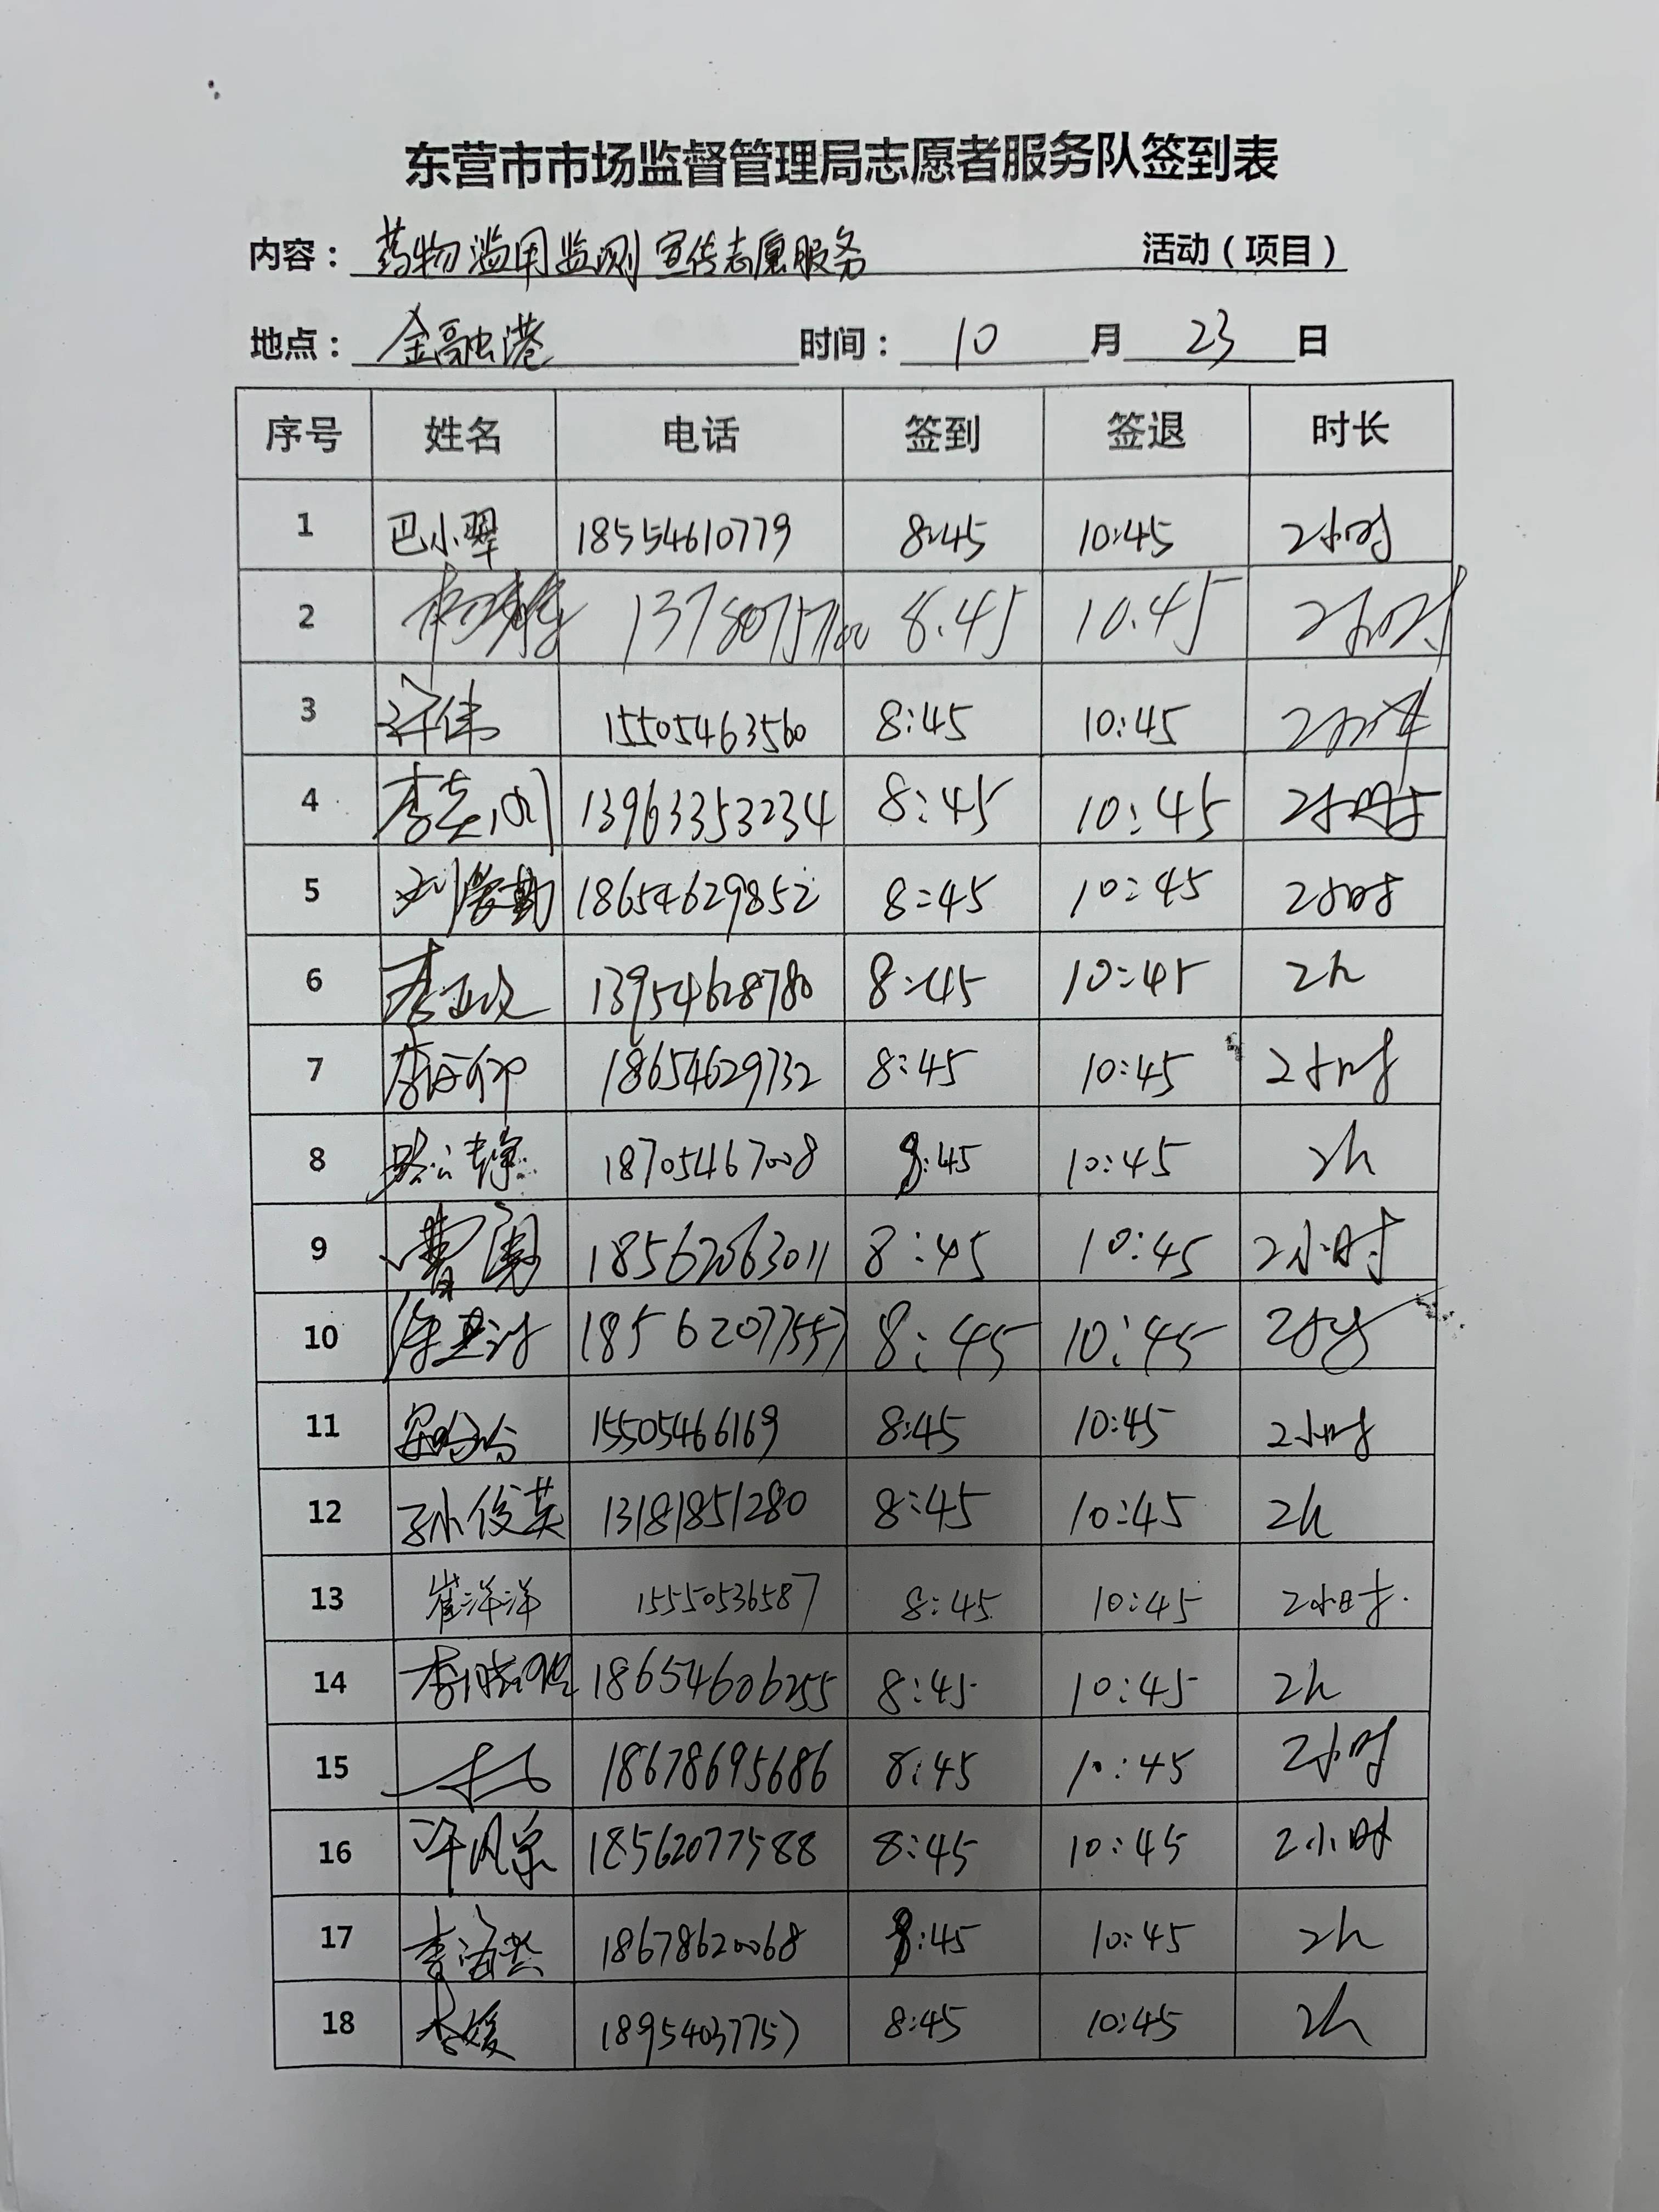 东营市市场监督管理局志愿者服务队签到表
内容：药物滥用监测宣传志愿服务 活动（项目）
地点：金融港 时间：10月23日
序号 姓名 电话 签到 签退 时长
1 巴小翠 18554610779 8:45 10:45 2小时
2 8.45 10.45 2小时
3 许伟 15505463560 8:45 10:45
4 13963353234 8:45 10:45 2小时
5 18654629852 8:45 10:45 2小时
6 13954628780 8:45 10:45 2h
7 18654629732 8:45 10:45 2小时
8 18705467008 8:45 10:45 2h
9 18562063011 8:45 10:45 2小时
10 8:45 10:45 2小时
11 15505466169 8:45 10:45 2小时
12 孙俊英 13181851280 8:45 10:45 2h
13 崔洋洋 15550536587 8:45 10:45 2小时.
14 18654606255 8:45 10:45 2h
15 18678695686 8:45 10:45 2小时
16 18562077588 8:45 10:45 2小时
17 18678620068 8:45 10:45 2h
18 李媛 18954037757 8:45 10:45 2h